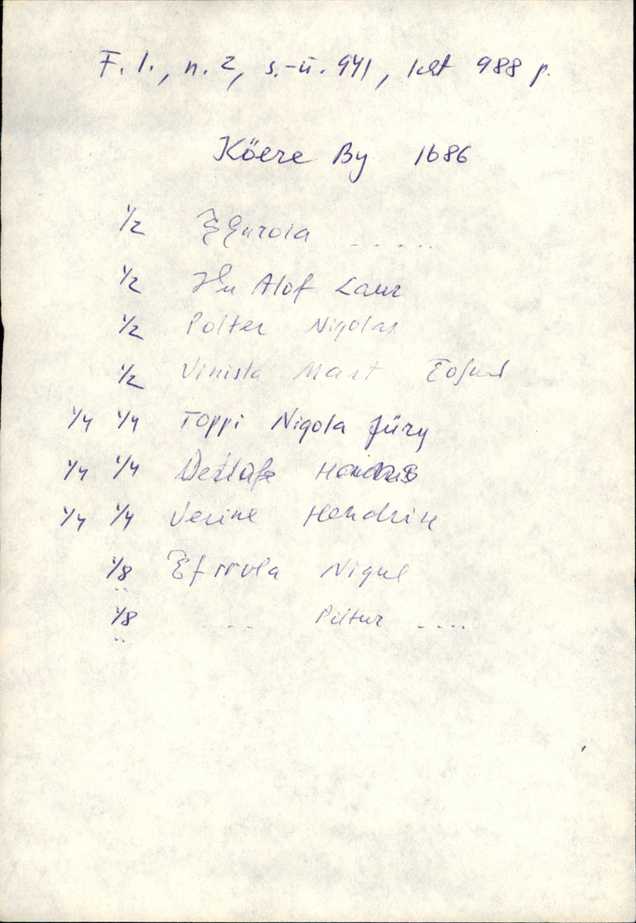 F. 1., n. 2, s.-ü. 941, lht 988 p.
Köere By 1686
1/2 . . . . .
1/2 Alof Laur
1/2 Polter Nigolas
1/2 Vinista Mart
1/4 1/4 Toppi Nigola Jüry
1/4 1/4
1/4 1/4 Verine Hendrik
1/8 Nigul
1/8 . . . . Peltur . . . .